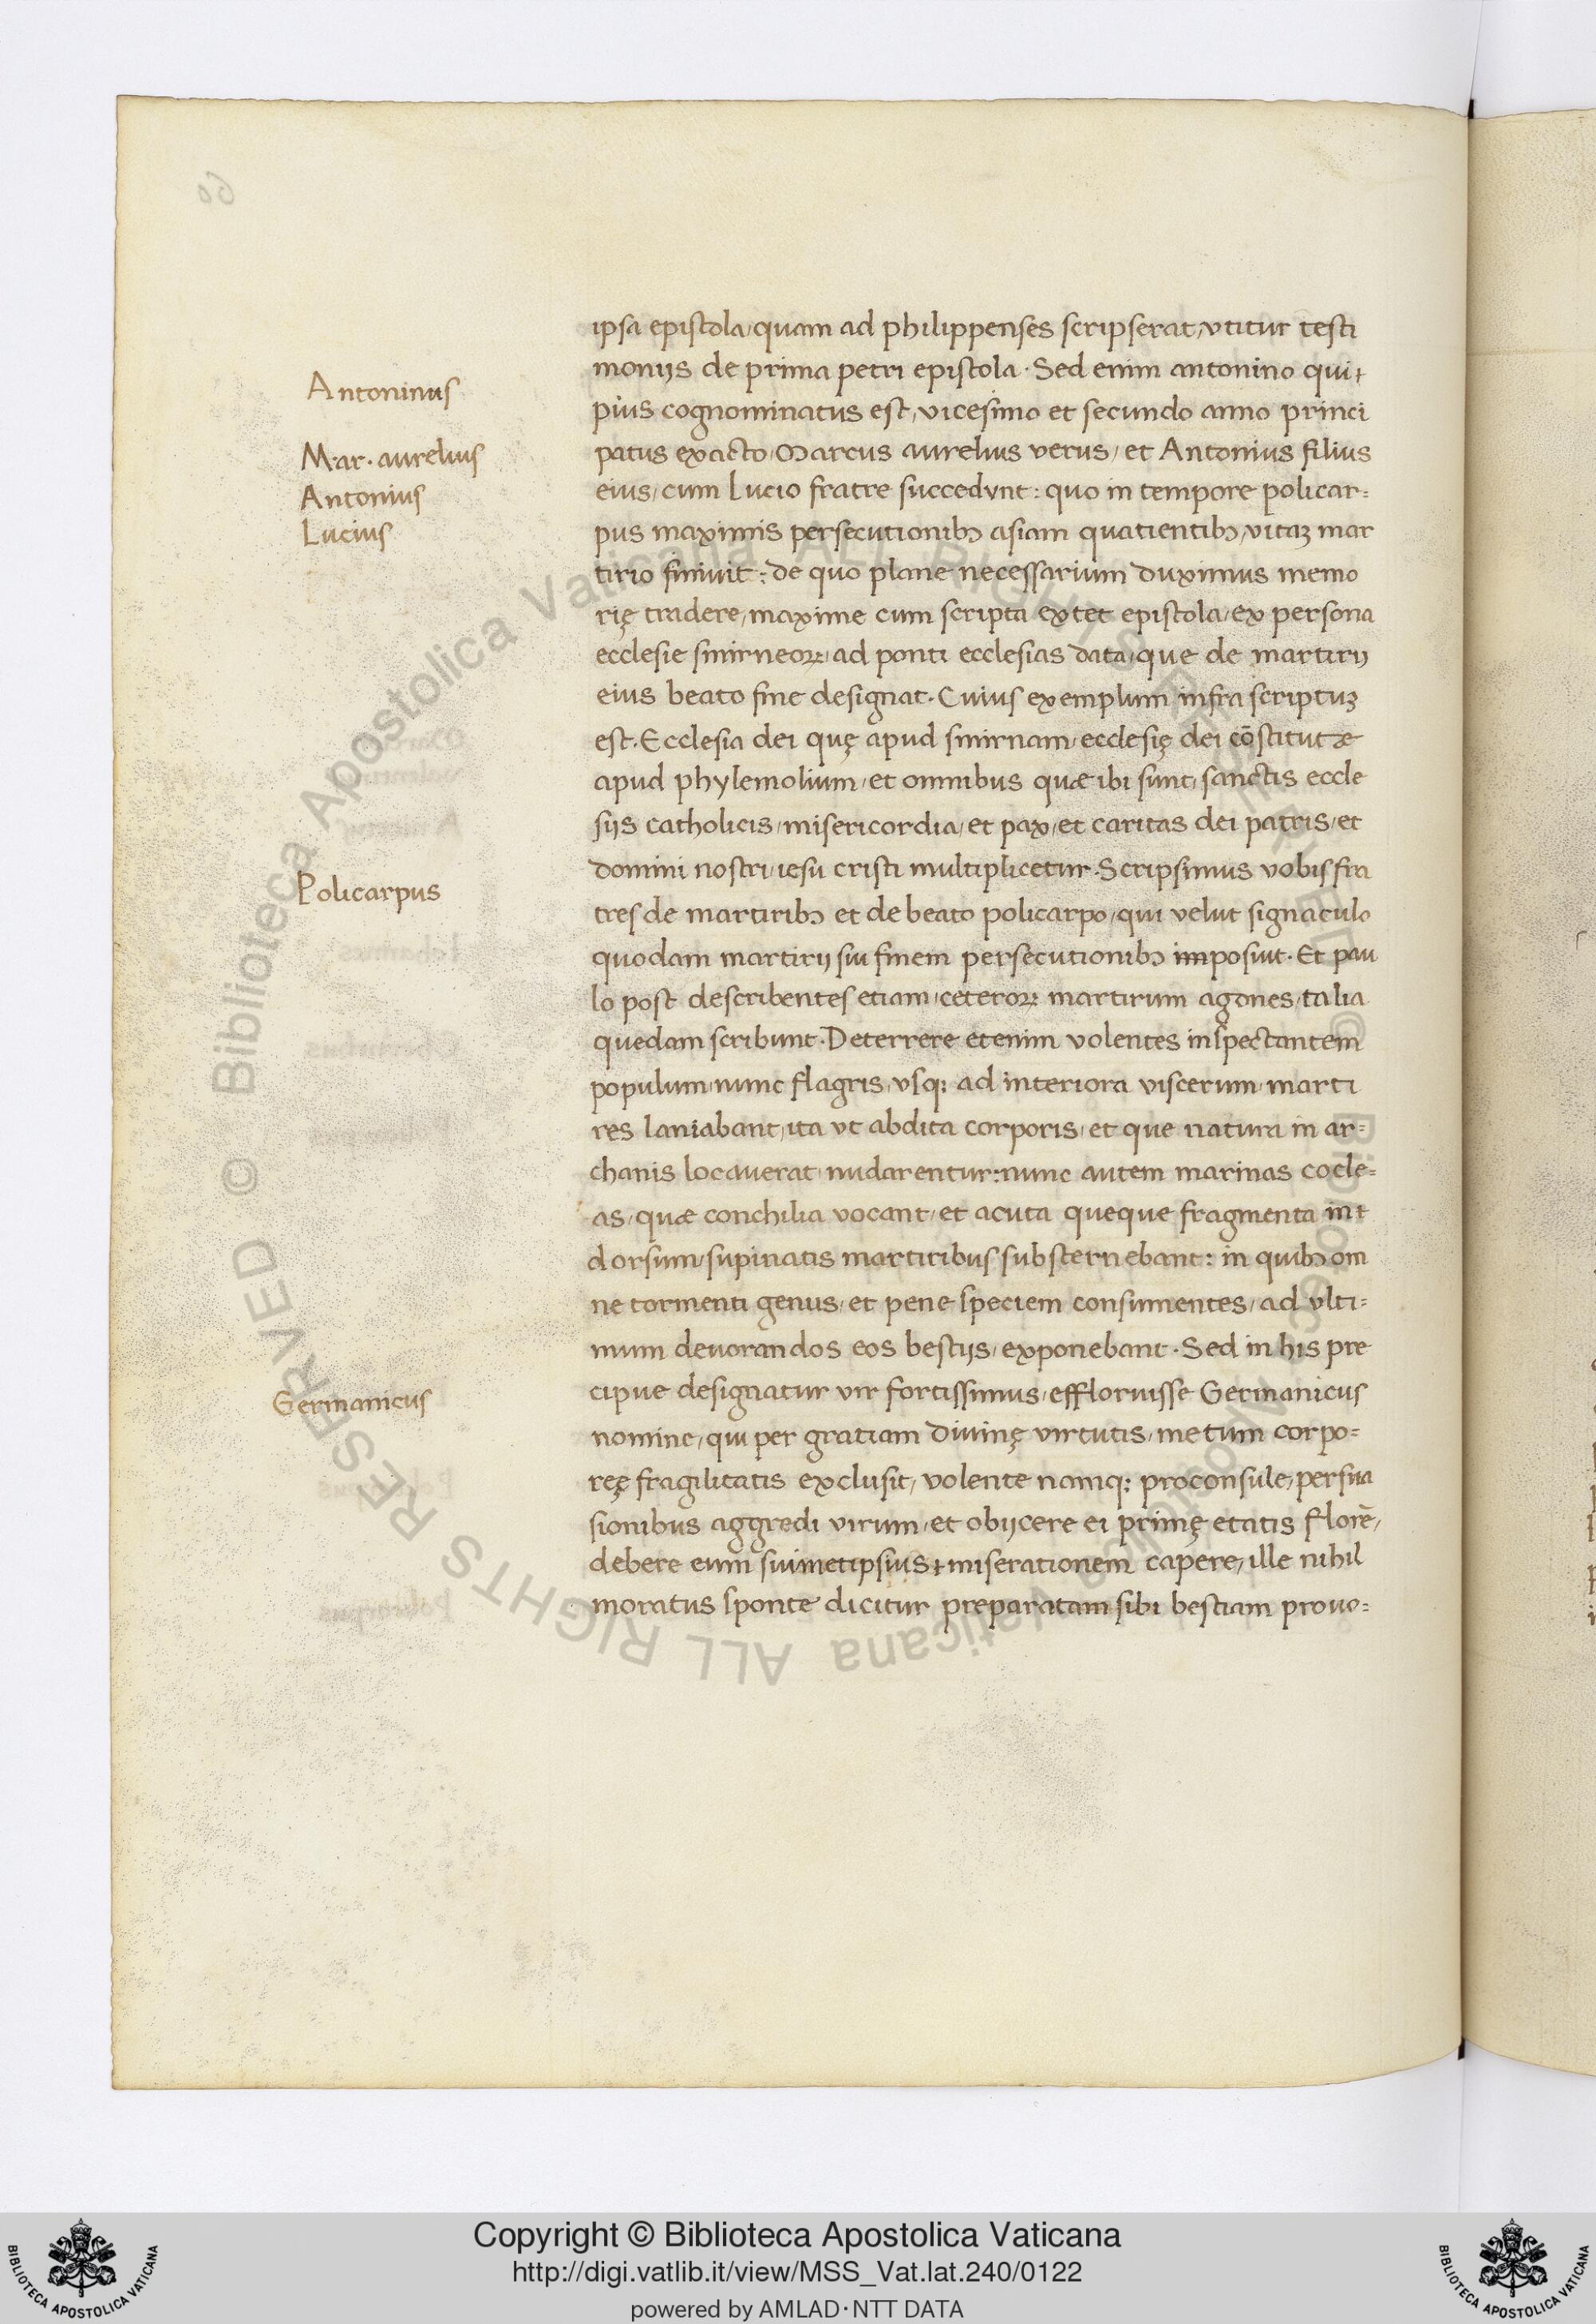 Antoninus
Mar. aurelius
Antonius
Lucius
Policarpus
Germanicus
ipsa epistola, quam ad philippenses scripserat, vtitur testi
monijs de prima petri epistola. Sed enim antonino qui
pius cognominatus est, vicesimo et secundo anno princi
patus exacto, Marcus aurelius verus, et Antonius filius
eius, cum Lucio fratre succedvnt: quo in tempore policar=
pus maximis persecutionibꝫ asiam quatientibꝫ, vitaꝫ mar
tirio finiuit: de quo plane necessarium duximus memo
rię tradere, maxime cum scripta extet epistola, ex persona
ecclesie smirneoꝝ, ad ponti ecclesias data, que de martirij
eius beato fine designat. Cuius exemplum infra scriptuꝫ
est. Ecclesia dei quę apud smirnam, ecclesię dei cōstitutæ
apud phylemolium, et omnibus quæ ibi sunt, sanctis eccle
sijs catholicis, misericordia, et pax, et caritas dei patris, et
domini nostri, iesu cristi multiplicetur. Scripsimus vobis fra
tres de martiribꝫ et de beato policarpo, qui velut signaculo
quodam martirij sui finem persecutionibꝫ imposuit. Et pau
lo post describentes etiam, ceteroꝝ martirum agones, talia
quedam scribunt. Deterrere etenim volentes inspectantem
populum, nunc flagris, vsqꝫ ad interiora viscerum, marti
res laniabant, ita vt abdita corporis, et que natura in ar=
chanis locauerat, nudarentur: nunc autem marinas cocle=
as, quæ conchilia vocant, et acuta queque fragmenta in
dorsum, supinatis martiribus substernebant: in quibꝫ om
ne tormenti genus, et pene speciem consumentes, ad vlti=
mum deuorandos eos bestijs, exponebant. Sed in his pre
cipue designatur vir fortissimus, effloruisse Germanicus
nomine, qui per gratiam diuinę virtutis, metum corpo=
reę fragilitatis exclusit, volente namqꝫ proconsule, persua
sionibus aggredi virum, et obijcere ei primę etatis florē,
debere eum suimetipsius miserationem capere, ille nihil
moratus sponte dicitur preparatam sibi bestiam prouo=
© Biblioteca Apostolica Vaticana ALL RIGHTS RESERVED
Copyright © Biblioteca Apostolica Vaticana
http://digi.vatlib.it/view/MSS_Vat.lat.240/0122
powered by AMLAD·NTT DATA
BIBLIOTECA APOSTOLICA VATICANA
BIBLIOTECA APOSTOLICA VATICANA